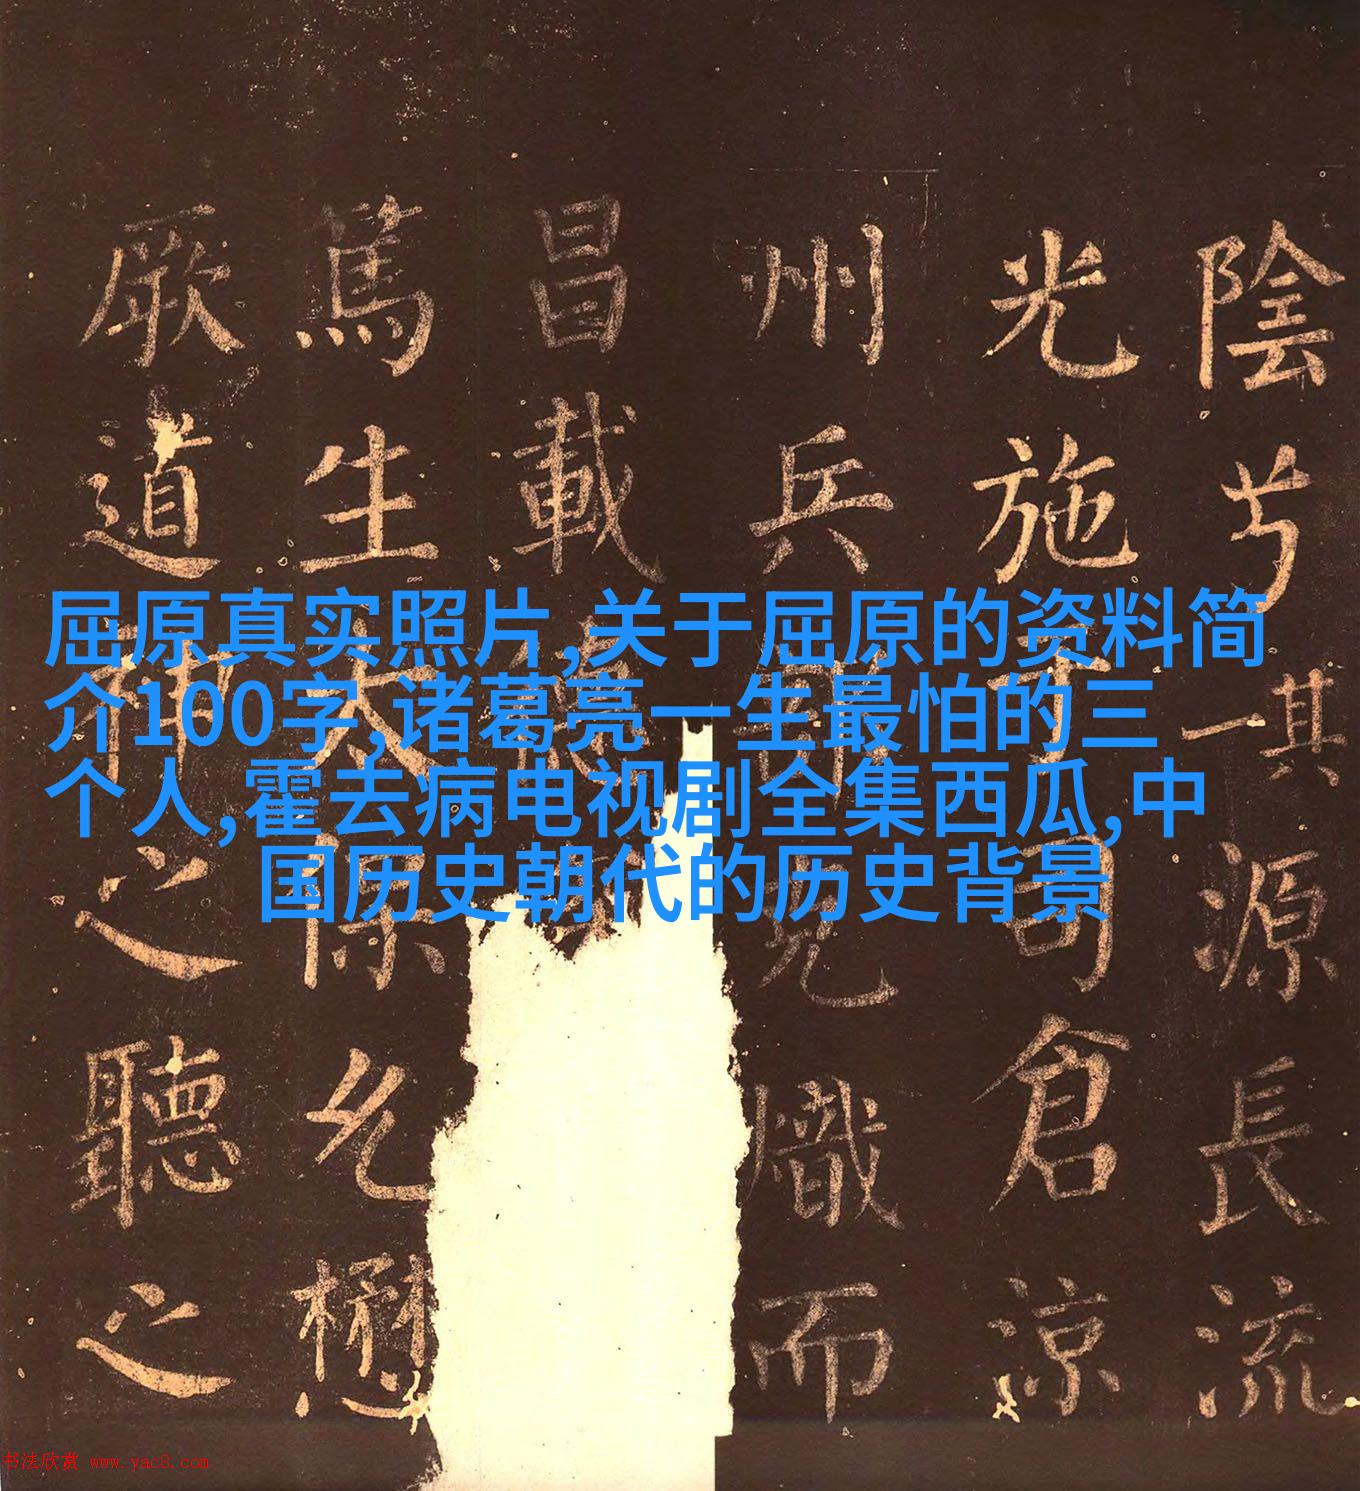 屈原真实照片,关于屈原的资料简
介100字,诸葛亮一生最怕的三
个人,霍去病电视剧全集西瓜,中
国历史朝代的历史背景
陰其一源長流
光施司倉涼
州兵熾而
昌載
篤生太保允懋
厥道神之聽之
书法欣赏 www.yac8.com